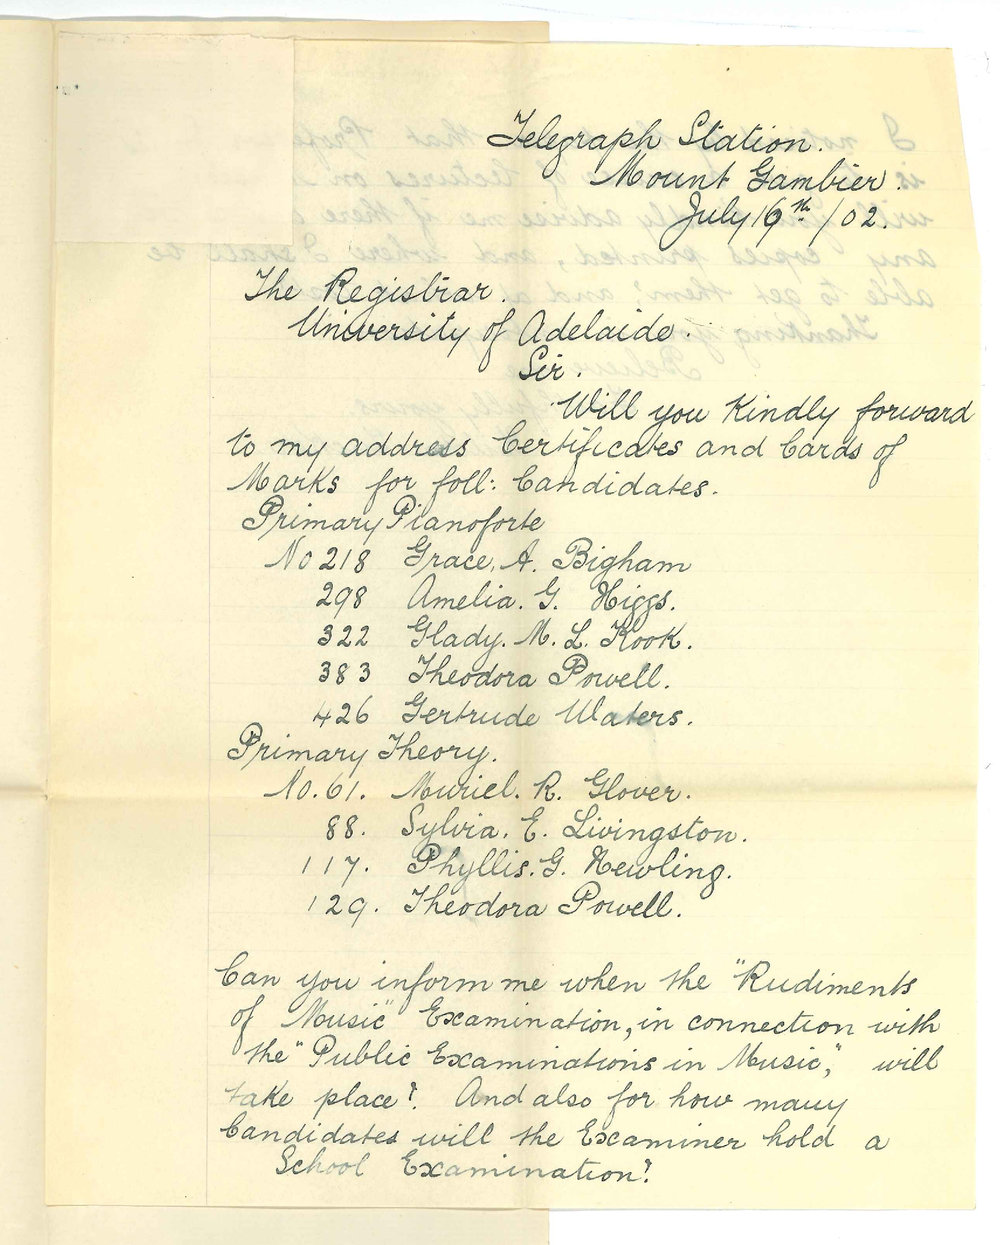 Telegraph Station.
Mount Gambier.
July 16th /02.
The Registrar.
University of Adelaide.
Sir.
Will you Kindly forward
to my address Certificates and Cards of
Marks for foll: Candidates.
Primary Pianoforte
No 218 Grace, A. Bigham
298 Amelia. G. Higgs.
322 Glady. M. L. Kook.
383 Theodora Powell.
426 Gertrude Waters.
Primary Theory.
No. 61. Muriel. R. Glover.
88. Sylvia. E. Livingston.
117. Phyllis. G. Newling.
129. Theodora Powell.
Can you inform me when the "Rudiments
of Music" Examination, in connection with
the "Public Examinations in Music," will
take place? And also for how many
Candidates will the Examiner hold a
School Examination?